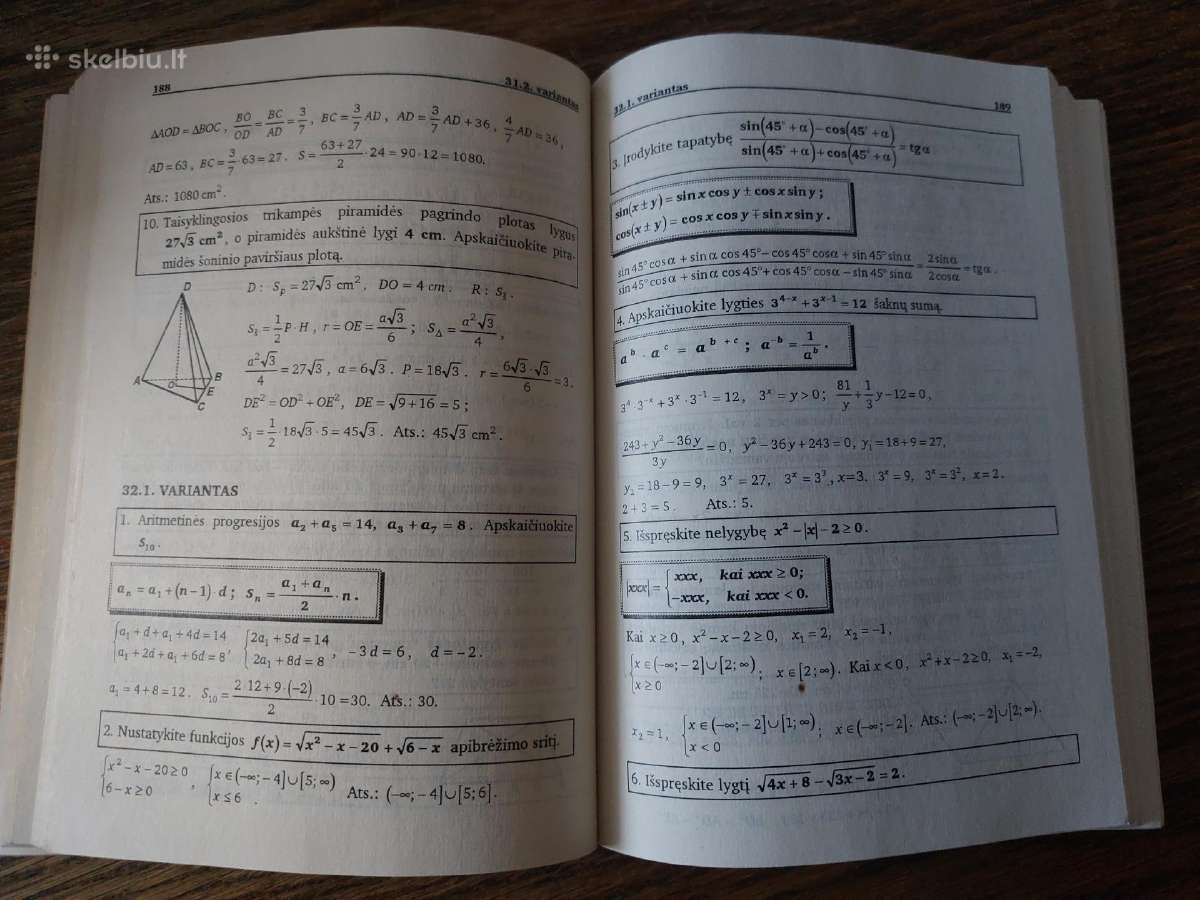 skelbiu.lt
188 31.2. variantas
ΔAOD = ΔBOC, BO/OD = BC/AD = 3/7, BC = 3/7 AD, AD = 3/7 AD + 36, 4/7 AD = 36,
AD = 63, BC = 3/7 · 63 = 27. S = (63 + 27)/2 · 24 = 90 · 12 = 1080.
Ats.: 1080 cm².
10. Taisyklingosios trikampės piramidės pagrindo plotas lygus
27√3 cm², o piramidės aukštinė lygi 4 cm. Apskaičiuokite pira-
midės šoninio paviršiaus plotą.
D
A
O
B
E
C
D: Sₚ = 27√3 cm², DO = 4 cm. R: Sš.
Sš = 1/2 P · H, r = OE = a√3/6; S_Δ = a²√3/4,
a²√3/4 = 27√3, a = 6√3. P = 18√3. r = 6√3 · √3/6 = 3.
DE² = OD² + OE², DE = √(9 + 16) = 5;
Sš = 1/2 · 18√3 · 5 = 45√3. Ats.: 45√3 cm².
32.1. VARIANTAS
1. Aritmetinės progresijos a₂ + a₅ = 14, a₃ + a₇ = 8. Apskaičiuokite
S₁₀.
aₙ = a₁ + (n−1) d; Sₙ = (a₁ + aₙ)/2 · n.
{a₁ + d + a₁ + 4d = 14; a₁ + 2d + a₁ + 6d = 8, {2a₁ + 5d = 14; 2a₁ + 8d = 8, −3d = 6, d = −2.
a₁ = 4 + 8 = 12. S₁₀ = (2·12 + 9·(−2))/2 · 10 = 30. Ats.: 30.
2. Nustatykite funkcijos f(x) = √(x² − x − 20) + √(6 − x) apibrėžimo sritį.
{x² − x − 20 ≥ 0; 6 − x ≥ 0, {x ∈ (−∞; −4] ∪ [5; ∞); x ≤ 6. Ats.: (−∞; −4] ∪ [5; 6].
32.1. variantas 189
3. Įrodykite tapatybę (sin(45° + α) − cos(45° + α))/(sin(45° + α) + cos(45° + α)) = tgα
sin(x ± y) = sin x cos y ± cos x sin y;
cos(x ± y) = cos x cos y ∓ sin x sin y.
(sin 45° cosα + sinα cos 45° − cos 45° cosα + sin 45° sinα)/(sin 45° cosα + sinα cos 45° + cos 45° cosα − sin 45° sinα) = 2sinα/2cosα = tgα.
4. Apskaičiuokite lygties 3⁴⁻ˣ + 3ˣ⁻¹ = 12 šaknų sumą.
aᵇ · aᶜ = aᵇ⁺ᶜ; a⁻ᵇ = 1/aᵇ.
3⁴ · 3⁻ˣ + 3ˣ · 3⁻¹ = 12, 3ˣ = y > 0; 81/y + 1/3 y − 12 = 0,
(243 + y² − 36y)/3y = 0, y² − 36y + 243 = 0, y₁ = 18 + 9 = 27,
y₂ = 18 − 9 = 9, 3ˣ = 27, 3ˣ = 3³, x = 3. 3ˣ = 9, 3ˣ = 3², x = 2.
2 + 3 = 5. Ats.: 5.
5. Išspręskite nelygybę x² − |x| − 2 ≥ 0.
|xxx| = {xxx, kai xxx ≥ 0;
−xxx, kai xxx < 0.
Kai x ≥ 0, x² − x − 2 ≥ 0, x₁ = 2, x₂ = −1,
{x ∈ (−∞; −2] ∪ [2; ∞); x ≥ 0; x ∈ [2; ∞). Kai x < 0, x² + x − 2 ≥ 0, x₁ = −2,
x₂ = 1, {x ∈ (−∞; −2] ∪ [1; ∞); x < 0; x ∈ (−∞; −2]. Ats.: (−∞; −2] ∪ [2; ∞).
6. Išspręskite lygtį √(4x + 8) − √(3x − 2) = 2.